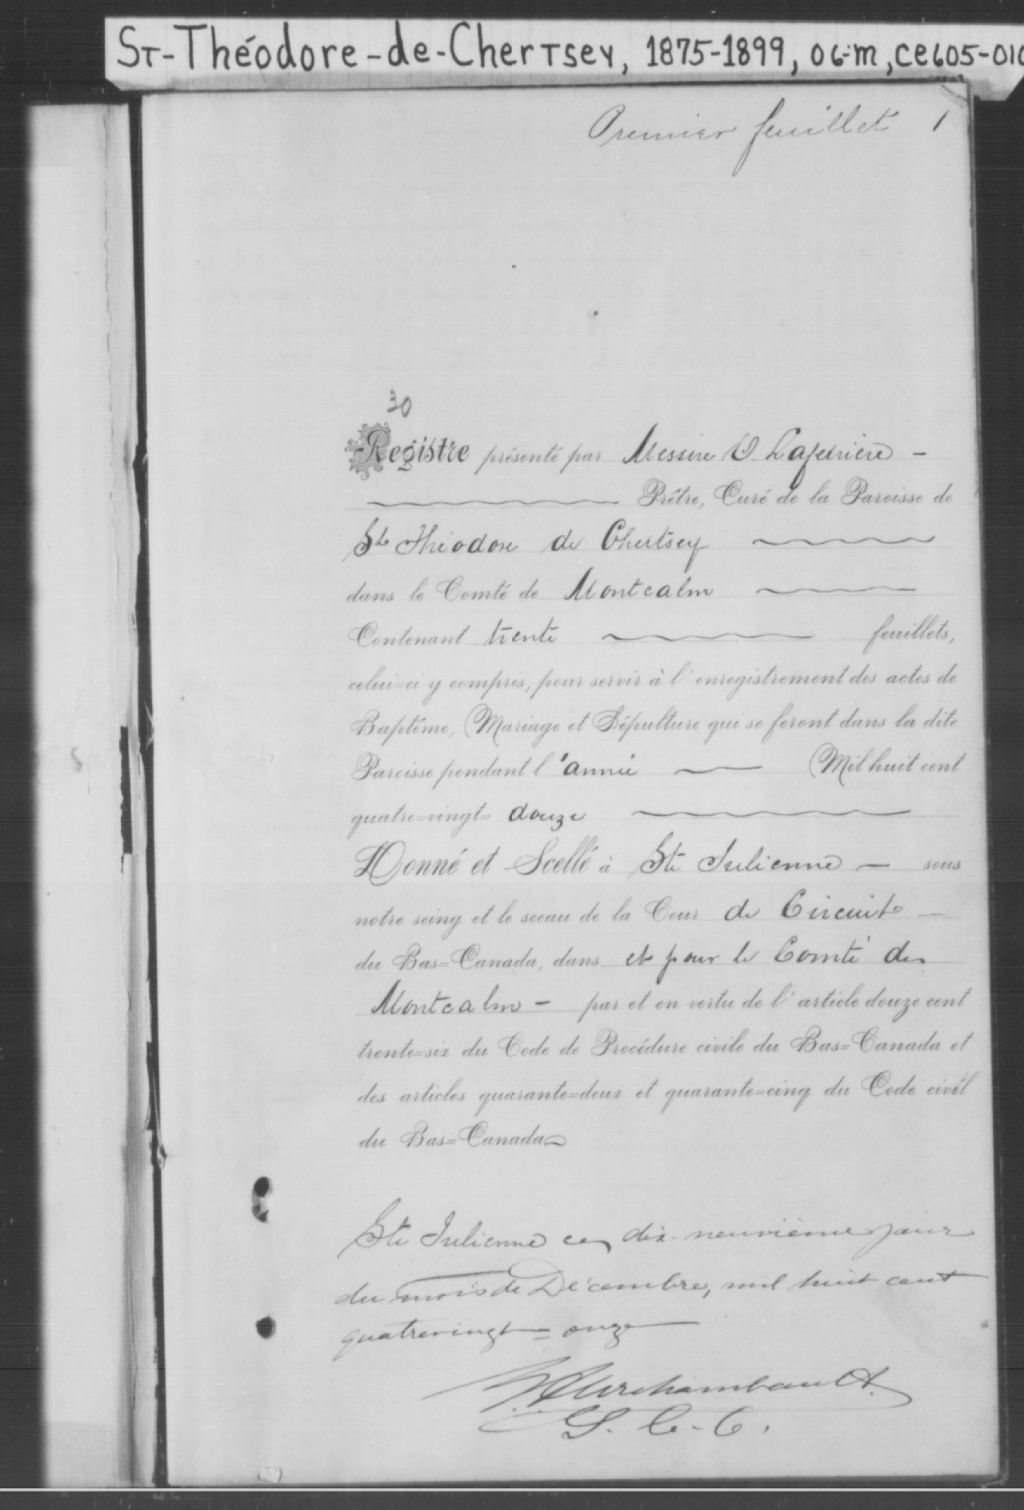 ST-Théodore-de-Chertsey, 1875-1899, 06-m, CE605-010
Premier feuillet 1
30
Registre présenté par Messire O. Laferrière -
Prêtre, Curé de la Paroisse de
St Théodore de Chertsey
dans le Comté de Montcalm
Contenant trente feuillets,
celui=ci y compris, pour servir à l'enregistrement des actes de
Baptême, Mariage et Sépulture qui se feront dans la dite
Paroisse pendant l'année Mil huit cent
quatre=vingt= douze
Donné et Scellé à Ste Julienne - sous
notre seing et le sceau de la Cour de Circuit
du Bas=Canada, dans et pour le Comté de
Montcalm - par et en vertu de l'article douze cent
trente=six du Code de Procédure civile du Bas=Canada et
des articles quarante=deux et quarante=cinq du Code civil
du Bas=Canada
Ste Julienne ce dix-neuvième jour
du mois de Décembre, mil huit cent
quatrevingt=onze
Archambault
G. C. C.